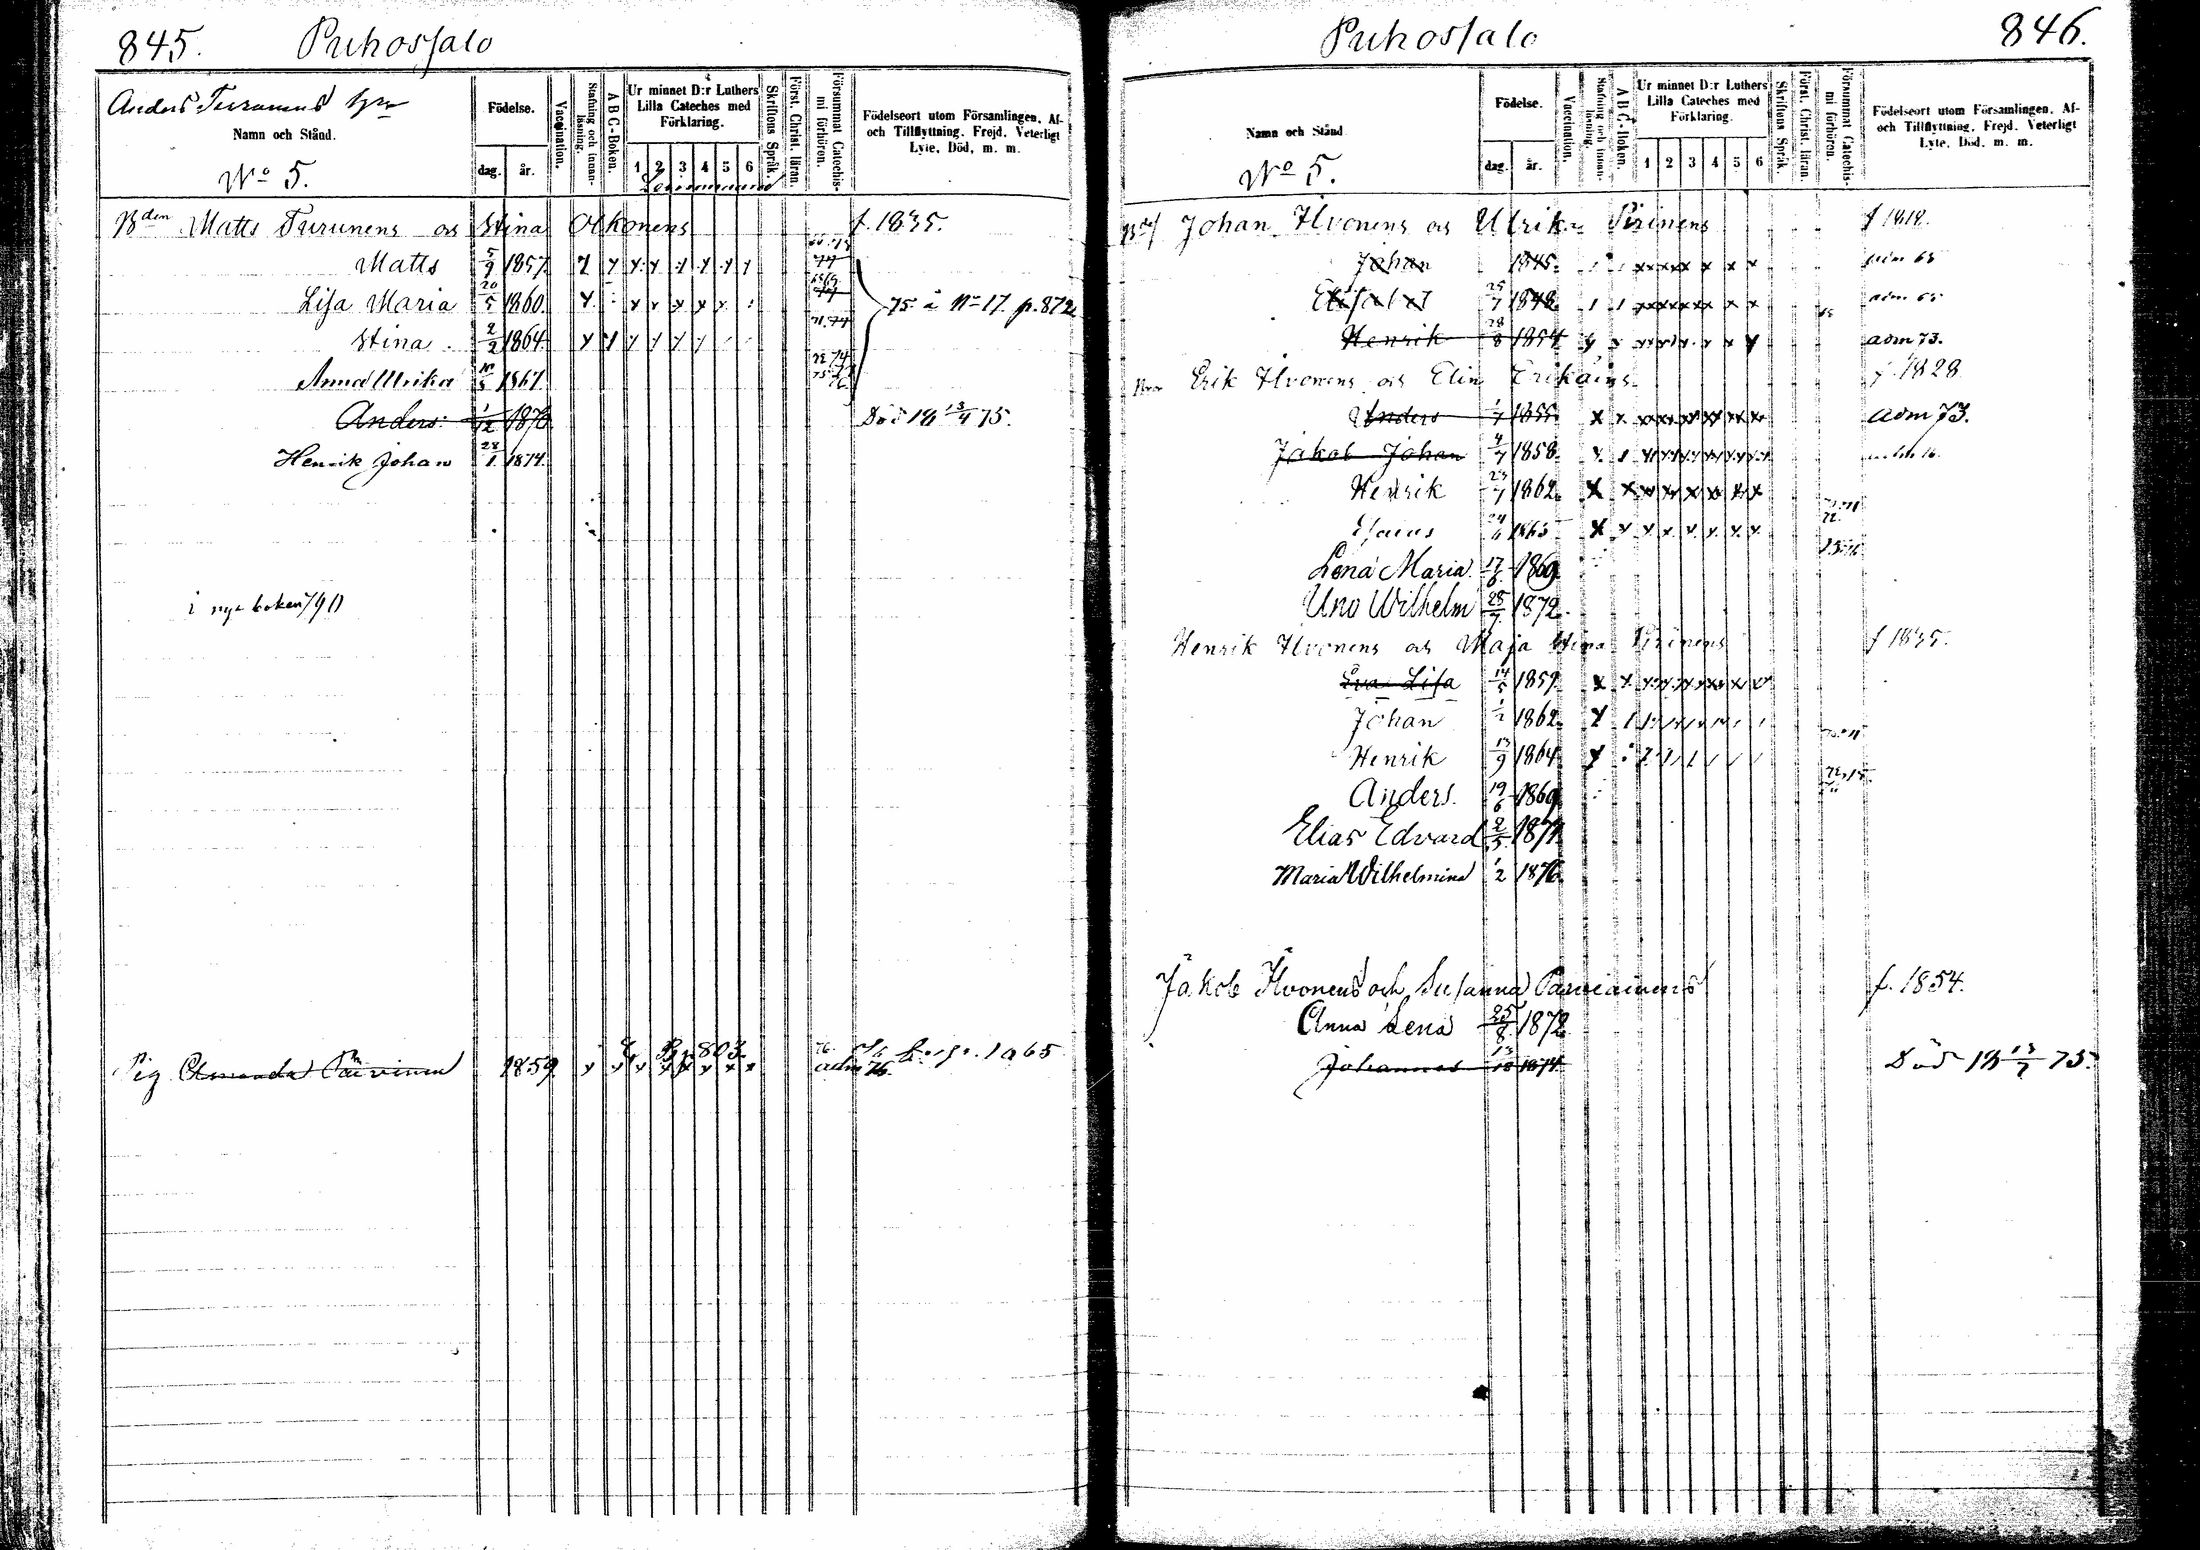 845. Puhossalo
Anders Turunens
Namn och Stånd.
No 5.
Födelse.
dag. år.
Vaccination.
Stafning och innan-läsning.
A B C-Boken.
Ur minnet D:r Luthers Lilla Cateches med Förklaring.
1 2 3 4 5 6
Skriftens Språk.
Först. Christ. läran.
Försummat Catechis-mi förhören.
Födelseort utom Församlingen, Af- och Tillflyttning, Frejd, Veterligt Lyte, Död, m. m.
Bden Matts Turunens och Stina Olkonens f. 1835.
Matts 5/9 1857
Lisa Maria 20/5 1860 75 å No 17 p. 872
Stina 2/2 1864
Anna Ulrika 10/5 1867
Anders 1/12 1870 Död 13/4 75.
Henrik Johan 28/1 1874.
i nya boken 790
p 803
Pig Amanda Parvinen 1859 adm 76
846. Puhossalo
Namn och Stånd
No 5.
Födelse.
dag. år.
Vaccination.
Stafning och innan-läsning.
A B C-Boken.
Ur minnet D:r Luthers Lilla Cateches med Förklaring.
1 2 3 4 5 6
Skriftens Språk.
Först. Christ. läran.
Försummat Catechis-mi förhören.
Födelseort utom Församlingen, Af- och Tillflyttning, Frejd, Veterligt Lyte, Död, m. m.
Johan Ihvonens och Ulrika Pirinens f 1818.
Johan 1845 adm 63
Elisabet 25/7 1848 adm 65
Henrik 28/8 1854 adm 73.
Erik Ihvonens och Elin Erikäins f. 1828
Anders 1/7 1855 adm 73.
Jakob Johan 4/7 1858
Henrik 23/7 1862
Esaias 24/6 1865
Lena Maria 17/6 1869
Uno Wilhelm 28/7 1872
Henrik Ihvonens och Maja Stina Pirinens f 1835.
Eva Lisa 14/5 1859
Johan 1/2 1862
Henrik 13/9 1864
Anders. 19/6 1869
Elias Edvard 2/5 1871
Maria Wilhelmina 1/2 1876
Jakob Ihvonens och Susanna Parviainens f. 1854.
Anna Lena 25/8 1872
Johannes 13/10 1874 Död 13/7 75.